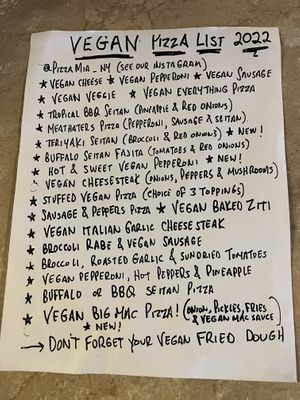 VEGAN PIZZA LIST 2022
@PIZZA MIA_NY (SEE OUR INSTAGRAM)
★ VEGAN CHEESE ★ VEGAN PEPPERONI ★ VEGAN SAUSAGE
★ VEGAN VEGGIE ★ VEGAN EVERYTHING PIZZA
★ TROPICAL BBQ SEITAN (PINEAPPLE & RED ONIONS)
★ MEATHATERS PIZZA (PEPPERONI, SAUSAGE & SEITAN)
★ TERIYAKI SEITAN (BROCCOLI & RED ONIONS) ★ NEW!
★ BUFFALO SEITAN FAJITA (TOMATOES & RED ONIONS)
★ HOT & SWEET VEGAN PEPPERONI ★ NEW!
VEGAN CHEESESTEAK (ONIONS, PEPPERS & MUSHROOMS)
★ STUFFED VEGAN PIZZA (CHOICE OF 3 TOPPINGS)
★ SAUSAGE & PEPPERS PIZZA ★ VEGAN BAKED ZITI
★ VEGAN ITALIAN GARLIC CHEESESTEAK
★ BROCCOLI RABE & VEGAN SAUSAGE
★ BROCCOLI, ROASTED GARLIC & SUNDRIED TOMATOES
★ VEGAN PEPPERONI, HOT PEPPERS & PINEAPPLE
★ BUFFALO OR BBQ SEITAN PIZZA
★ VEGAN BIG MAC PIZZA! (ONION, PICKLES, FRIES & VEGAN MAC SAUCE)
★ NEW!
→ DON'T FORGET YOUR VEGAN FRIED DOUGH